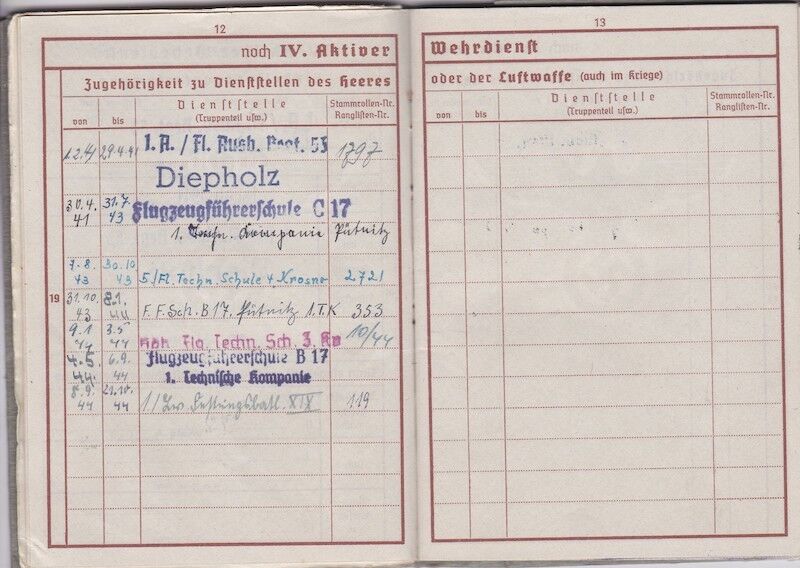 12
noch IV. Aktiver
Zugehörigkeit zu Dienststellen des Heeres
von
bis
Dienststelle
(Truppenteil usw.)
Stammrollen-Nr.
Ranglisten-Nr.
1.2.41 29.4.41 1. A. / Fl. Ausb. Regt. 53 1797
Diepholz
30.4. 31.7. Flugzeugführerschule C 17
41 43
1. Techn. Kompanie Pütnitz
7.8. 30.10
43 43 5./Fl. Techn. Schule 4 Krosno 2721
19
31.10. 8.1.
43 44 F.F.Sch. B 17. Pütnitz 1.T.K 353
9.1 3.5
44 44 Flg. Techn. Sch. 3. 10/44
4.5. 6.9. Flugzeugführerschule B 17
44 44 1. Technische Kompanie
8.9. 21.10.
44 44 1/Lw. Festungsbatl. XIX 119
13
Wehrdienst
oder der Luftwaffe (auch im Kriege)
von
bis
Dienststelle
(Truppenteil usw.)
Stammrollen-Nr.
Ranglisten-Nr.